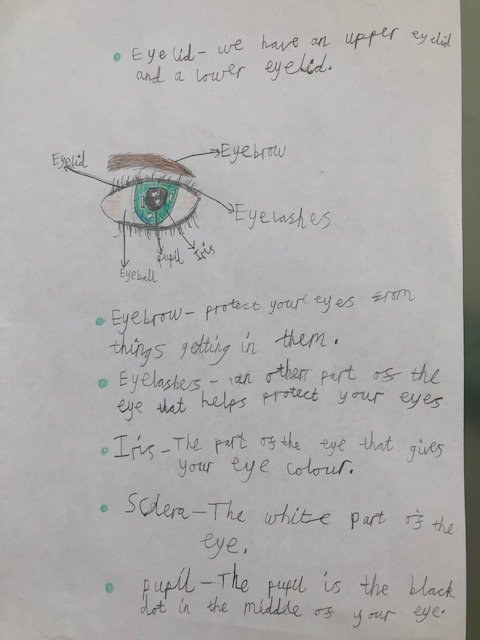 Eyelid - we have an upper eyelid
and a lower eyelid.
Eyelid
Eyebrow
Eyelashes
Iris
Pupil
Eyeball
Eyebrow - protect your eyes from
things getting in them.
Eyelashers - an other part of the
eye that helps protect your eyes
Iris - The part of the eye that gives
your eye colour.
Sclera - The white part of the
eye.
pupil - The pupil is the black
dot in the middle of your eye.